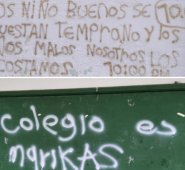 OS NIÑO BUENOS SE
UESTAN TEMPRANO Y LOS
NOS MALOS NOSOTROS LOS
COSTAMOS 10:00 PM
Colegio es
mqrikAS